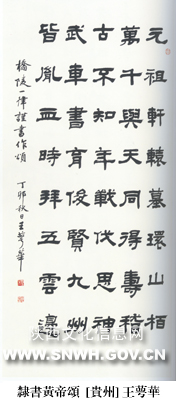 元祖軒轅墓環山栢
萬千與天同得壽稽
古不知年戰伐思神
武車書育後賢九州
皆胤血時拜五雲邊
橋陵一律謹書作頌
丁卯秋日王萼華
陕西文化信息网
WWW.SNWH.GOV.CN
隸書黃帝頌 [貴州] 王萼華